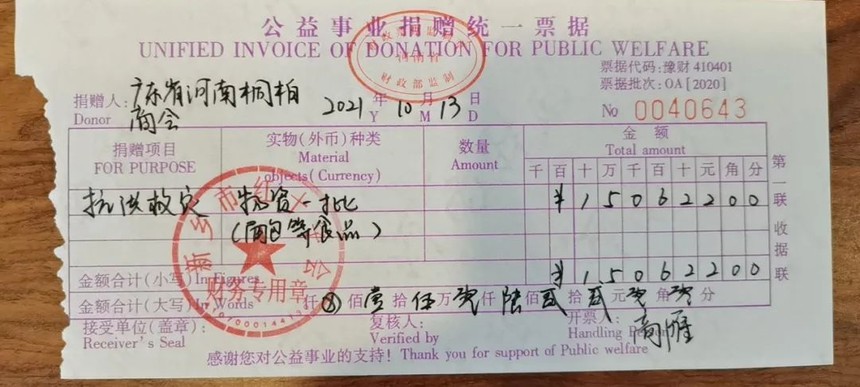 公益事业捐赠统一票据
UNIFIED INVOICE OF DONATION FOR PUBLIC WELFARE
财政部监制
票据代码:豫财 410401
票据批次:OA [2020]
捐赠人: 广东省河南桐柏商会 2021 年 10 月 13 日
Donor Y M D
No 0040643
捐赠项目 实物(外币)种类 数量 金额
FOR PURPOSE Material objects( Currency) Amount Total amount
千 百 十 万 千 百 十 元 角 分
抗洪救灾 物资一批 ¥ 1 5 0 6 2 2 0 0
(面包等食品)
金额合计(小写) In Figures ¥ 1 5 0 6 2 2 0 0
金额合计(大写) In Words 仟 ⊗ 佰 壹 拾 伍 万 零 仟 陆 佰 贰 拾 贰 元 零 角 零 分
接受单位(盖章): 复核人: 开票人:
Receiver's Seal Verified by Handling
感谢您对公益事业的支持! Thank you for support of Public welfare
第一联 收据联
新乡市红十字会
财务专用章